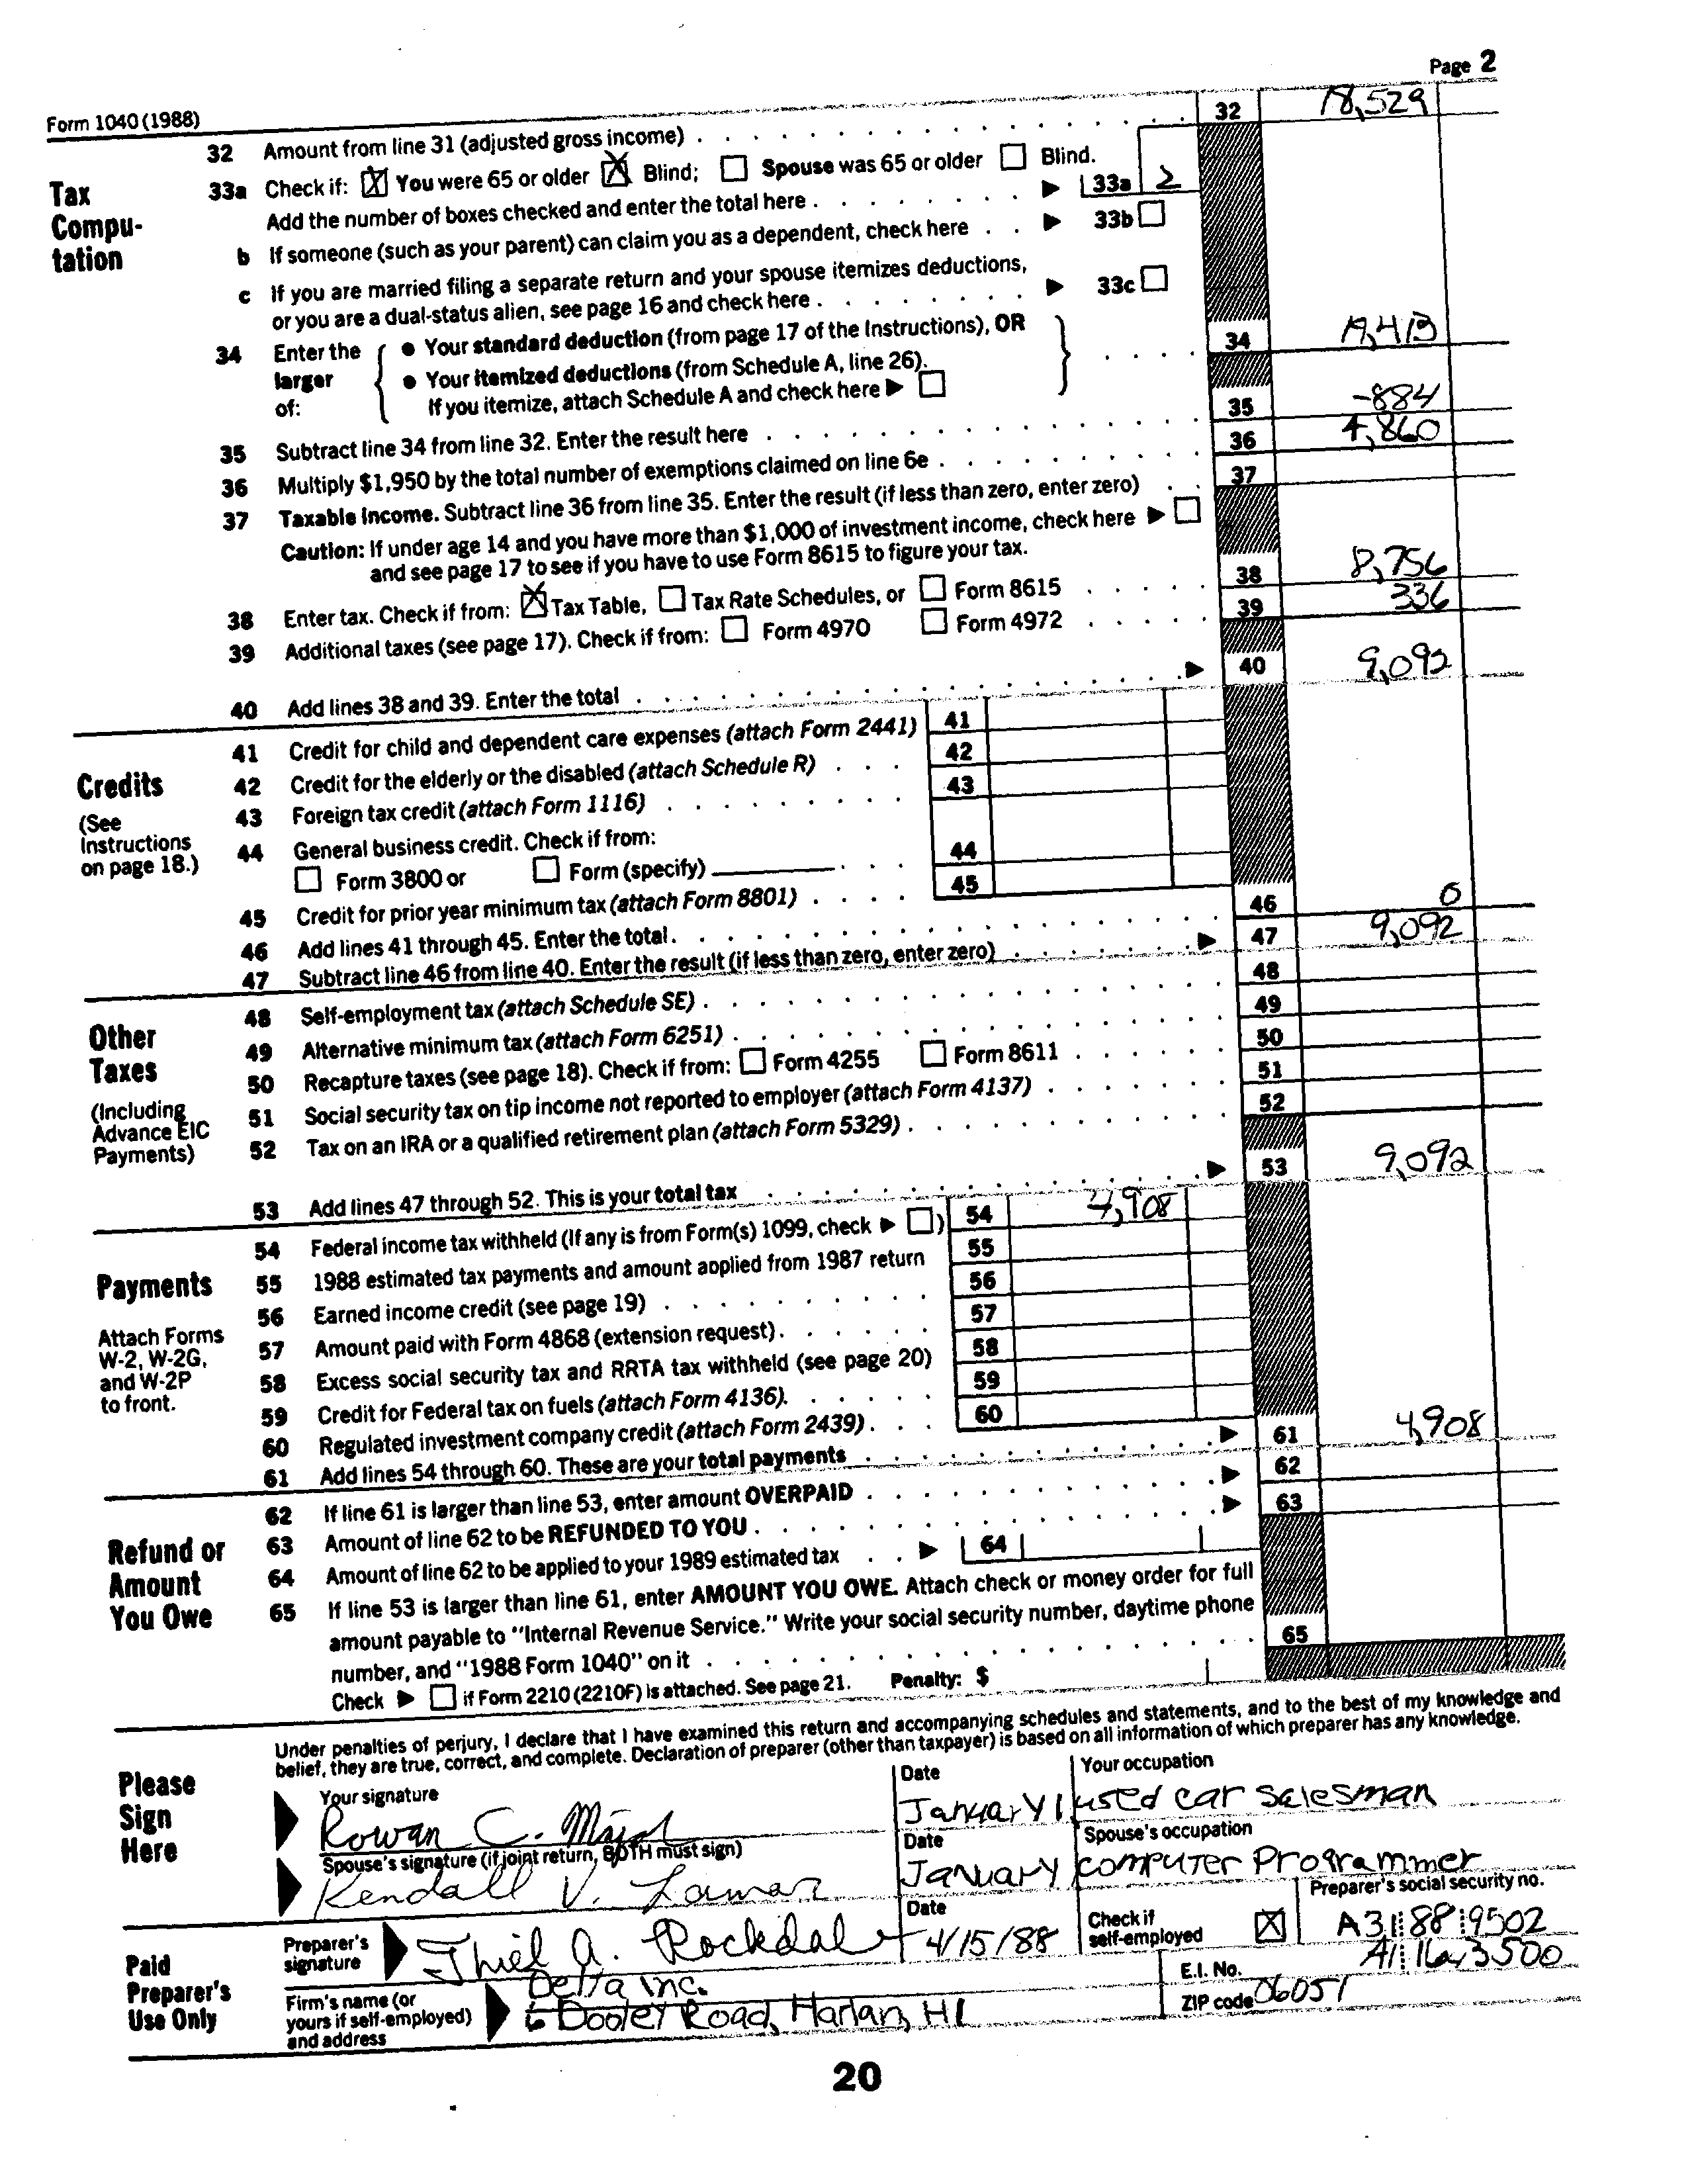 Page 2
Form 1040 (1988)
32 Amount from line 31 (adjusted gross income) 32 18,529
Tax Compu- tation
33a Check if: ☒ You were 65 or older ☒ Blind; ☐ Spouse was 65 or older ☐ Blind.
Add the number of boxes checked and enter the total here ▶ 33a 2
b If someone (such as your parent) can claim you as a dependent, check here ▶ 33b ☐
c If you are married filing a separate return and your spouse itemizes deductions,
or you are a dual-status alien, see page 16 and check here ▶ 33c ☐
34 Enter the larger of:
● Your standard deduction (from page 17 of the Instructions), OR
● Your itemized deductions (from Schedule A, line 26).
If you itemize, attach Schedule A and check here ▶ ☐
34 19,413
35 Subtract line 34 from line 32. Enter the result here 35 -884
36 Multiply $1,950 by the total number of exemptions claimed on line 6e 36 4,860
37 Taxable income. Subtract line 36 from line 35. Enter the result (if less than zero, enter zero) 37
Caution: If under age 14 and you have more than $1,000 of investment income, check here ▶ ☐
and see page 17 to see if you have to use Form 8615 to figure your tax.
38 Enter tax. Check if from: ☒ Tax Table, ☐ Tax Rate Schedules, or ☐ Form 8615 38 8,756
39 Additional taxes (see page 17). Check if from: ☐ Form 4970 ☐ Form 4972 39 336
40 Add lines 38 and 39. Enter the total ▶ 40 9,092
Credits
(See Instructions on page 18.)
41 Credit for child and dependent care expenses (attach Form 2441) 41
42 Credit for the elderly or the disabled (attach Schedule R) 42
43 Foreign tax credit (attach Form 1116) 43
44 General business credit. Check if from:
☐ Form 3800 or ☐ Form (specify) 44
45 Credit for prior year minimum tax (attach Form 8801) 45
46 Add lines 41 through 45. Enter the total 46 0
47 Subtract line 46 from line 40. Enter the result (if less than zero, enter zero) ▶ 47 9,092
Other Taxes
(Including Advance EIC Payments)
48 Self-employment tax (attach Schedule SE) 48
49 Alternative minimum tax (attach Form 6251) 49
50 Recapture taxes (see page 18). Check if from: ☐ Form 4255 ☐ Form 8611 50
51 Social security tax on tip income not reported to employer (attach Form 4137) 51
52 Tax on an IRA or a qualified retirement plan (attach Form 5329) 52
53 Add lines 47 through 52. This is your total tax ▶ 53 9,092
Payments
Attach Forms W-2, W-2G, and W-2P to front.
54 Federal income tax withheld (If any is from Form(s) 1099, check ▶ ☐) 54 4,908
55 1988 estimated tax payments and amount applied from 1987 return 55
56 Earned income credit (see page 19) 56
57 Amount paid with Form 4868 (extension request) 57
58 Excess social security tax and RRTA tax withheld (see page 20) 58
59 Credit for Federal tax on fuels (attach Form 4136) 59
60 Regulated investment company credit (attach Form 2439) 60
61 Add lines 54 through 60. These are your total payments ▶ 61 4,908
Refund or Amount You Owe
62 If line 61 is larger than line 53, enter amount OVERPAID ▶ 62
63 Amount of line 62 to be REFUNDED TO YOU ▶ 63
64 Amount of line 62 to be applied to your 1989 estimated tax ▶ 64
65 If line 53 is larger than line 61, enter AMOUNT YOU OWE. Attach check or money order for full
amount payable to "Internal Revenue Service." Write your social security number, daytime phone
number, and "1988 Form 1040" on it 65
Check ▶ ☐ if Form 2210 (2210F) is attached. See page 21. Penalty: $
Please Sign Here
Under penalties of perjury, I declare that I have examined this return and accompanying schedules and statements, and to the best of my knowledge and
belief, they are true, correct, and complete. Declaration of preparer (other than taxpayer) is based on all information of which preparer has any knowledge.
Your signature Date Your occupation
Rowan C. Major January 1 used car salesman
Spouse's signature (if joint return, BOTH must sign) Date Spouse's occupation
Kendall V. Lamar January computer Programmer
Paid Preparer's Use Only
Preparer's signature Date Check if self-employed ☒ Preparer's social security no.
Thiel A. Rockdale 4/15/88 A31 88 9502
Firm's name (or yours if self-employed) and address
Delta Inc. E.I. No. A1 16,3500
6 Dooley Road, Harlan, HI ZIP code 06051
20